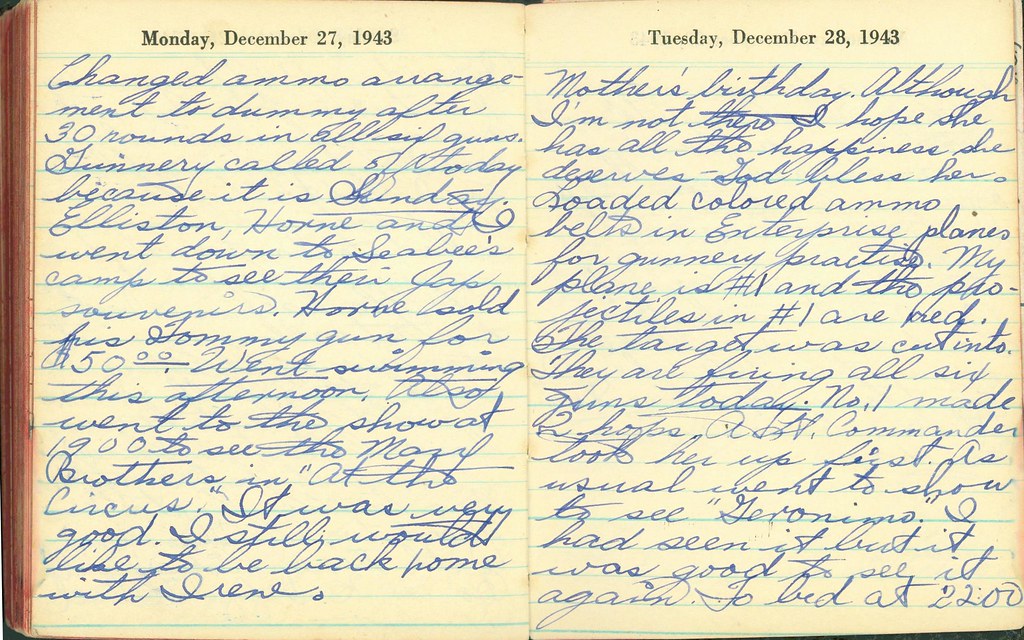 Monday, December 27, 1943
Changed ammo arrange-
ment to dummy after
30 rounds in all six guns.
Gunnery called off today
because it is Sunday.
Elliston, Horne and I
went down to Seabee's
camp to see their Jap
souvenirs. Horne sold
his Tommy gun for
$150.00. Went swimming
this afternoon. Also
went to the show at
1900 to see the Marx
Brothers in "At the
Circus." It was very
good. I still would
like to be back home
with Irene.
Tuesday, December 28, 1943
Mother's birthday. Although
I'm not there I hope she
has all the happiness she
deserves - God bless her.
Loaded colored ammo
belts in Enterprise planes
for gunnery practise. My
plane is #1 and the pro-
jectiles in #1 are red.
The target was cut into.
They are firing all six
guns today. No. 1 made
2 hops. A Lt. Commander
took her up first. As
usual went to show
to see "Geronimo." I
had seen it but it
was good to see it
again. To bed at 2200